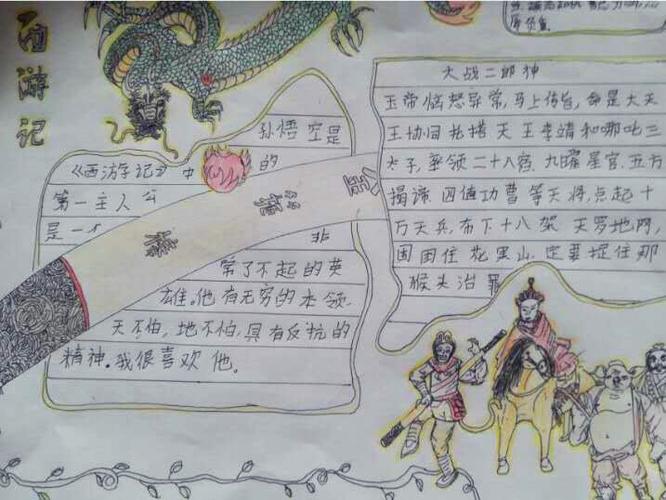 西游记
孙悟空是
《西游记》中的
第一主人公
是一个非
常了不起的英
雄。他有无穷的本领
天不怕,地不怕,具有反抗的
精神。我很喜欢他。
金箍棒
大战二郎神
玉帝恼怒异常,马上传旨,命是大天
王协同托搭天王李靖和哪吒三
太子,率领二十八宿、九曜星官、五方
揭谛四值功曹等天将,点起十
万天兵,布下十八架天罗地网,
围困住花果山定要捉住那
猴头治罪